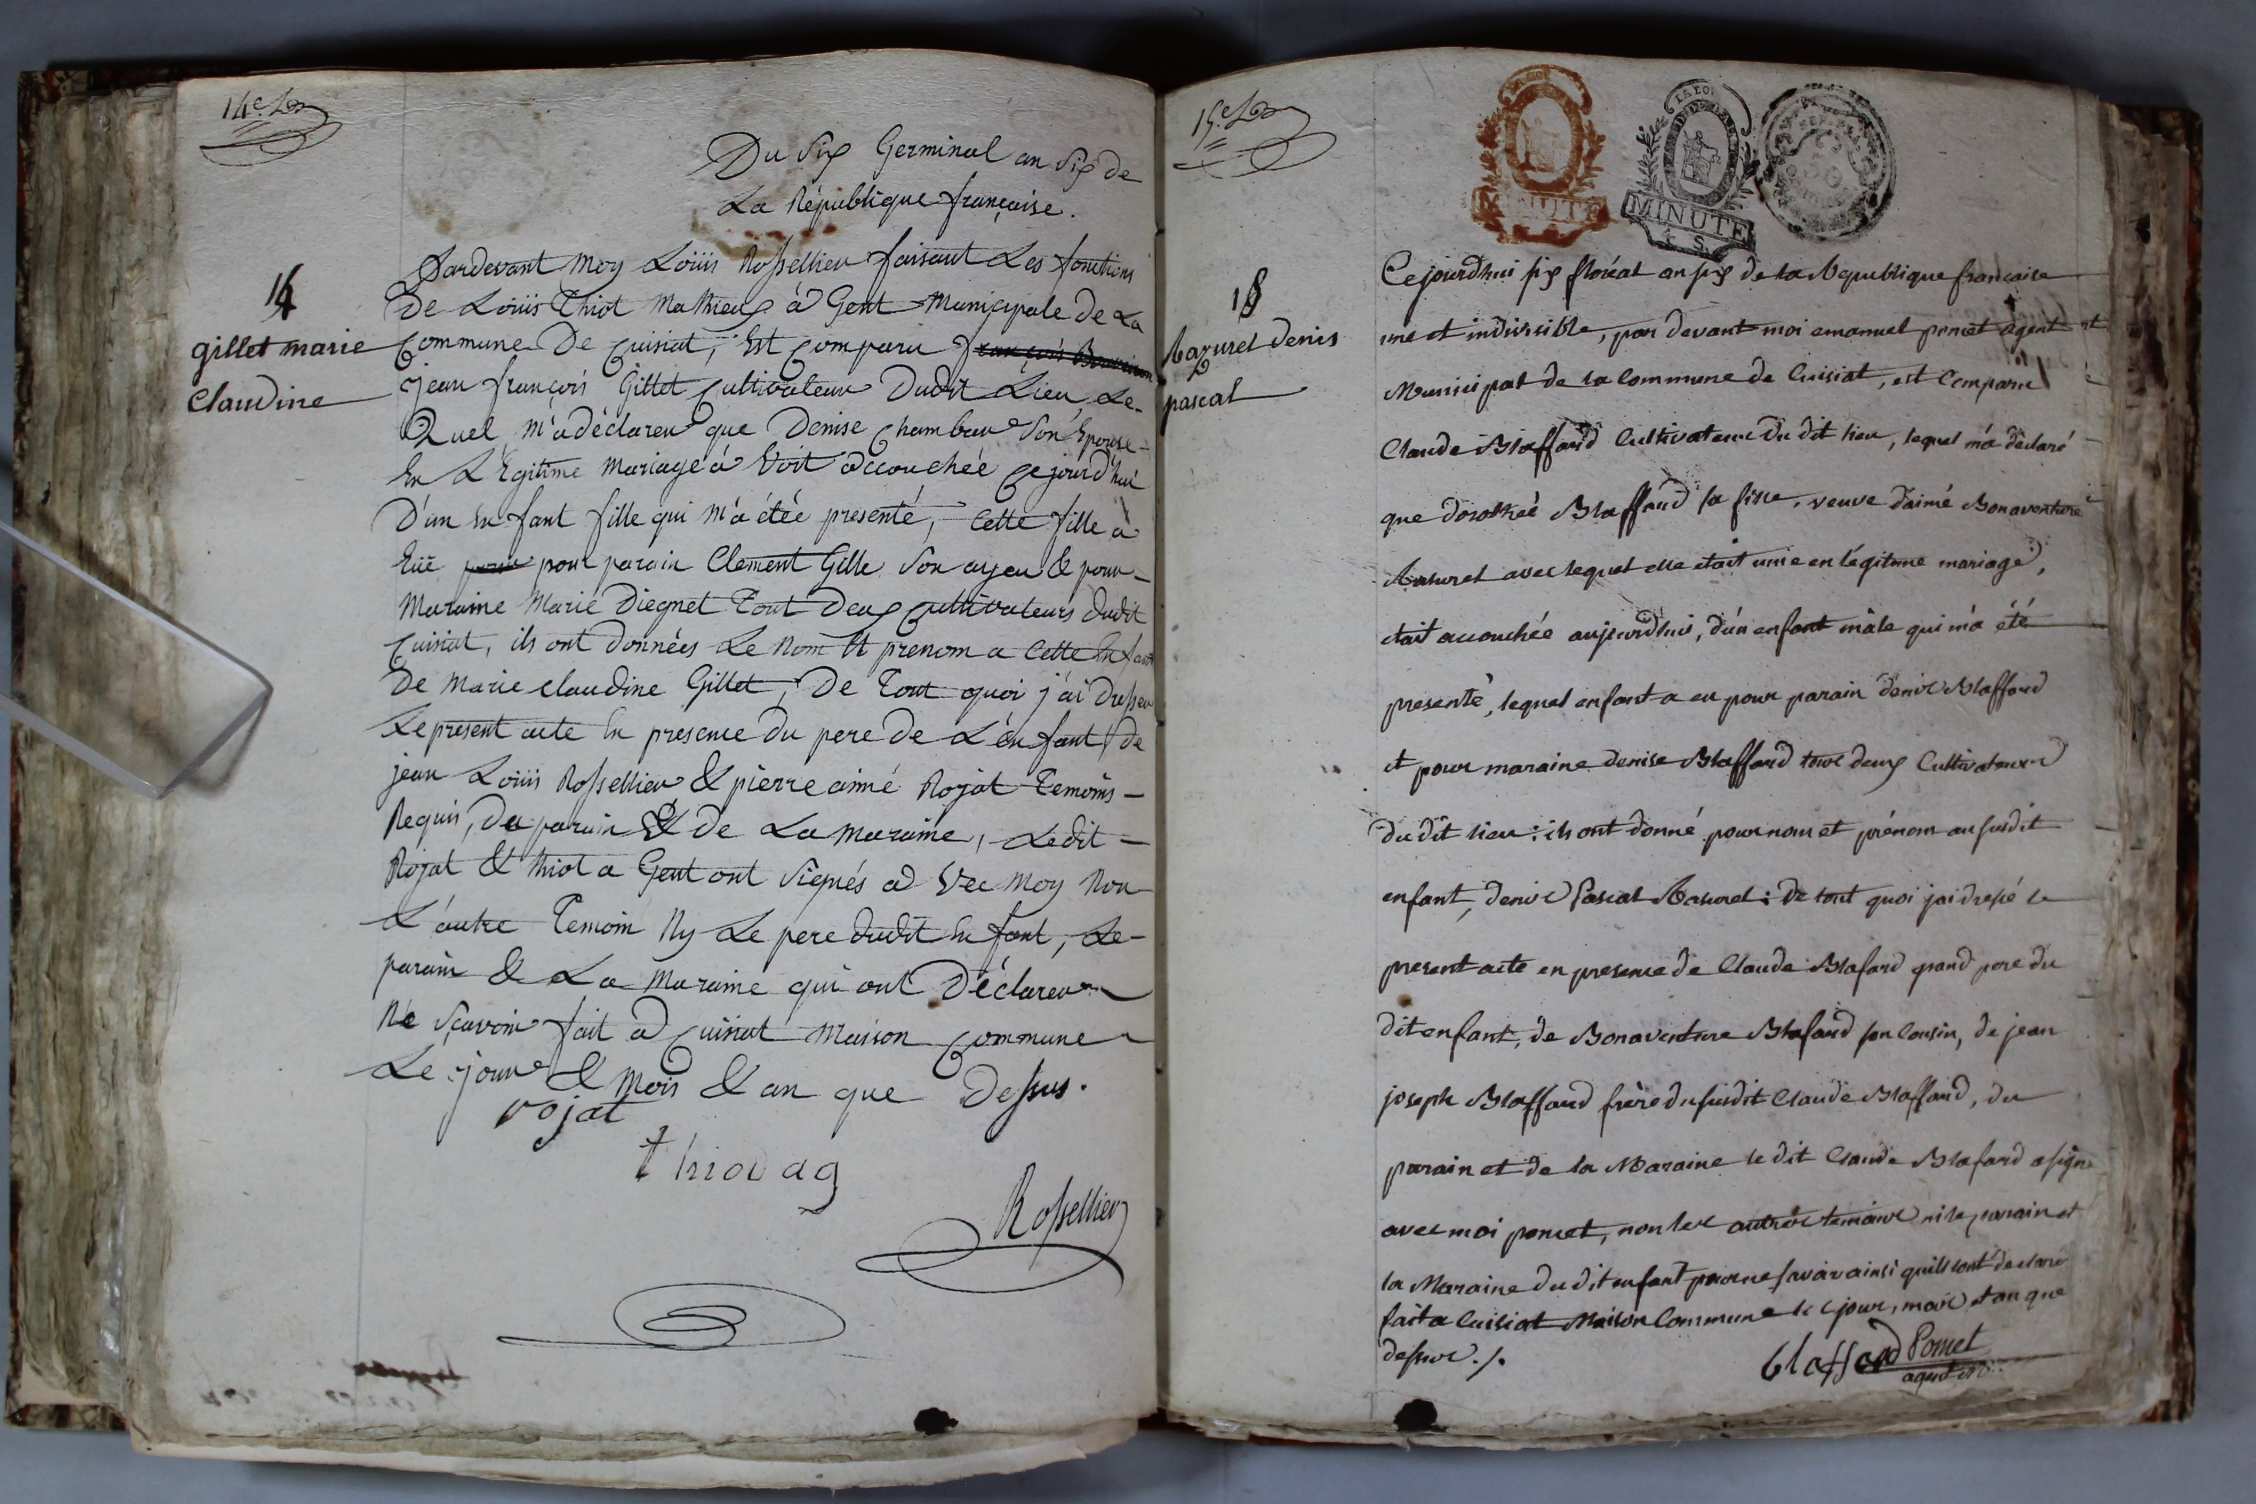 14e
Du Six Germinal an Six de
La République française.
14
gillet marie
Claudine
Pardevant Moy Loüis Rossellieu faisant Les fonctions
De Loüis Thiot Mathieux à Gent Municipale de La
Commune De Cuisiat, Est Comparu françois
jean françois Gillet Cultivateur Dudit Lieu, Le-
Quel m'a déclarer que Denise Chambru Son Epouse-
En LEgitime Mariage à Voit accouchée Cejourd'hui
D'un Enfant fille qui M'a étée presenté, Cette fille à
Eüe pour parain Clement Gille Son ayeu & pour-
Maraine Marie Diegnet Tout Deux Cultivateurs dudit
Cuisiat, ils ont Données Le Nom Et prenom a Cette Enfant
De Marie Claudine Gillet, De Tout quoi j'ai Dresser
Le present acte En presence Du pere De L'enfant, De
jean Loüis Rossellieu & pierre aimé Rojat Temoins-
Requis, Du parain & De La Maraine, Ledit-
Rojat & Thiot a Gent ont Signés ad Vec Moy Non
L'autre Temoin Ny Le pere Dudit Enfant, Le-
parain & La Maraine qui ont Déclarer
Ne Sçavoir fait ad Cuisiat Maison Commune
Le jour & Mois & an que Dessus.
rojat
thiot ag
Rossellieu
15e
LA LOI
MINUTE
LA LOI
MINUTE
S.
15
Mazuret Denis
pascal
Cejourdhui six floréal an six de la Republique francaise
une et indivisible, par devant moi emanuel poncet agent
Municipal de la Commune de Cuisiat, est Comparu
Claude Blaffard Cultivateur du dit lieu, lequel m'a déclaré
que dorothée Blaffard sa fille, veuve d'aimé Bonaventure
Masuret avec lequel elle etait unie en légitime mariage,
etait accouchée aujourdhui, d'un enfant mâle qui m'a été
presenté, lequel enfant a eu pour parain denis Blaffard
et pour maraine denise Blaffard tous deux Cultivateurs
du dit lieu: ils ont donné pour nom et prénom au susdit
enfant, denis Pascal Masuret: de tout quoi j'ai dressé le
present acte en presence de Claude Blafard grand pere du
dit enfant, de Bonaventure Blafard son Cousin, de jean
joseph Blaffard frère du susdit Claude Blaffard, du
parain et de la Maraine le dit Claude Blafard a signé
avec moi poncet, non les autres temoins ni le parain et
la Maraine du dit enfant pour ne savoir ainsi quils ont declaré
fait a Cuisiat Maison Commune le jour, mois et an que
dessus ./.
blaffard Poncet
agent